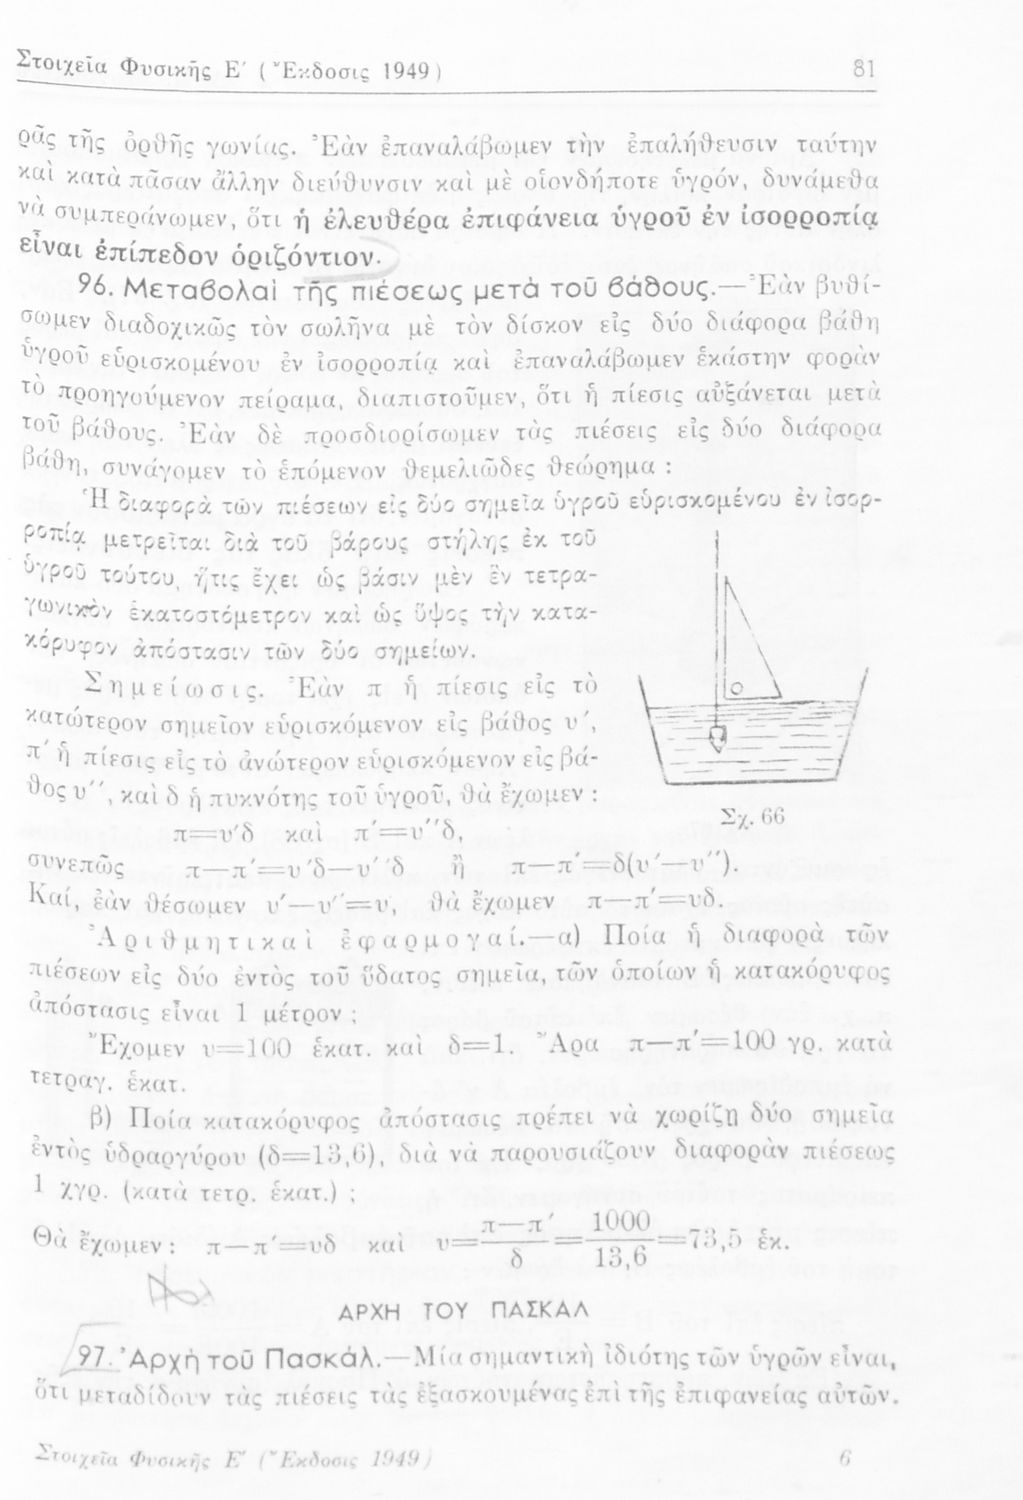 Στοιχεῖα Φυσικῆς Ε΄ (Ἔκδοσις 1949) 81
ρᾶς τῆς ὀρθῆς γωνίας. Ἐὰν ἐπαναλάβωμεν τὴν ἐπαλήθευσιν ταύτην
καὶ κατὰ πᾶσαν ἄλλην διεύθυνσιν καὶ μὲ οἱονδήποτε ὑγρόν, δυνάμεθα
νὰ συμπεράνωμεν, ὅτι ἡ ἐλευθέρα ἐπιφάνεια ὑγροῦ ἐν ἰσορροπίᾳ
εἶναι ἐπίπεδον ὁριζόντιον.
96. Μεταβολαὶ τῆς πιέσεως μετὰ τοῦ βάθους.—Ἐὰν βυθί-
σωμεν διαδοχικῶς τὸν σωλῆνα μὲ τὸν δίσκον εἰς δύο διάφορα βάθη
ὑγροῦ εὑρισκομένου ἐν ἰσορροπίᾳ καὶ ἐπαναλάβωμεν ἑκάστην φορὰν
τὸ προηγούμενον πείραμα, διαπιστοῦμεν, ὅτι ἡ πίεσις αὐξάνεται μετὰ
τοῦ βάθους. Ἐὰν δὲ προσδιορίσωμεν τὰς πιέσεις εἰς δύο διάφορα
βάθη, συνάγομεν τὸ ἑπόμενον θεμελιῶδες θεώρημα :
Ἡ διαφορὰ τῶν πιέσεων εἰς δύο σημεῖα ὑγροῦ εὑρισκομένου ἐν ἰσορ-
ροπίᾳ μετρεῖται διὰ τοῦ βάρους στήλης ἐκ τοῦ
ὑγροῦ τούτου, ἥτις ἔχει ὡς βάσιν μὲν ἓν τετρα-
γωνικὸν ἑκατοστόμετρον καὶ ὡς ὕψος τὴν κατα-
κόρυφον ἀπόστασιν τῶν δύο σημείων.
Σημείωσις. Ἐὰν π ἡ πίεσις εἰς τὸ
κατώτερον σημεῖον εὑρισκόμενον εἰς βάθος υ΄,
π΄ ἡ πίεσις εἰς τὸ ἀνώτερον εὑρισκόμενον εἰς βά-
θος υ΄΄, καὶ δ ἡ πυκνότης τοῦ ὑγροῦ, θὰ ἔχωμεν :
Σχ. 66
π=υ΄δ καὶ π΄=υ΄΄δ,
συνεπῶς π—π΄=υ΄δ—υ΄΄δ ἢ π—π΄=δ(υ΄—υ΄΄).
Καί, ἐὰν θέσωμεν υ΄—υ΄΄=υ, θὰ ἔχωμεν π—π΄=υδ.
Ἀριθμητικαὶ ἐφαρμογαί.—α) Ποία ἡ διαφορὰ τῶν
πιέσεων εἰς δύο ἐντὸς τοῦ ὕδατος σημεῖα, τῶν ὁποίων ἡ κατακόρυφος
ἀπόστασις εἶναι 1 μέτρον ;
Ἔχομεν υ=100 ἑκατ. καὶ δ=1. Ἄρα π—π΄=100 γρ. κατὰ
τετραγ. ἑκατ.
β) Ποία κατακόρυφος ἀπόστασις πρέπει νὰ χωρίζῃ δύο σημεῖα
ἐντὸς ὑδραργύρου (δ=13,6), διὰ νὰ παρουσιάζουν διαφορὰν πιέσεως
1 χγρ. (κατὰ τετρ. ἑκατ.) ;
Θὰ ἔχωμεν : π—π΄=υδ καὶ υ= π—π΄/δ = 1000/13,6 =73,5 ἑκ.
ΑΡΧΗ ΤΟΥ ΠΑΣΚΑΛ
97. Ἀρχὴ τοῦ Πασκάλ.—Μία σημαντικὴ ἰδιότης τῶν ὑγρῶν εἶναι,
ὅτι μεταδίδουν τὰς πιέσεις τὰς ἐξασκουμένας ἐπὶ τῆς ἐπιφανείας αὐτῶν.
Στοιχεῖα Φυσικῆς Ε΄ (Ἔκδοσις 1949) 6